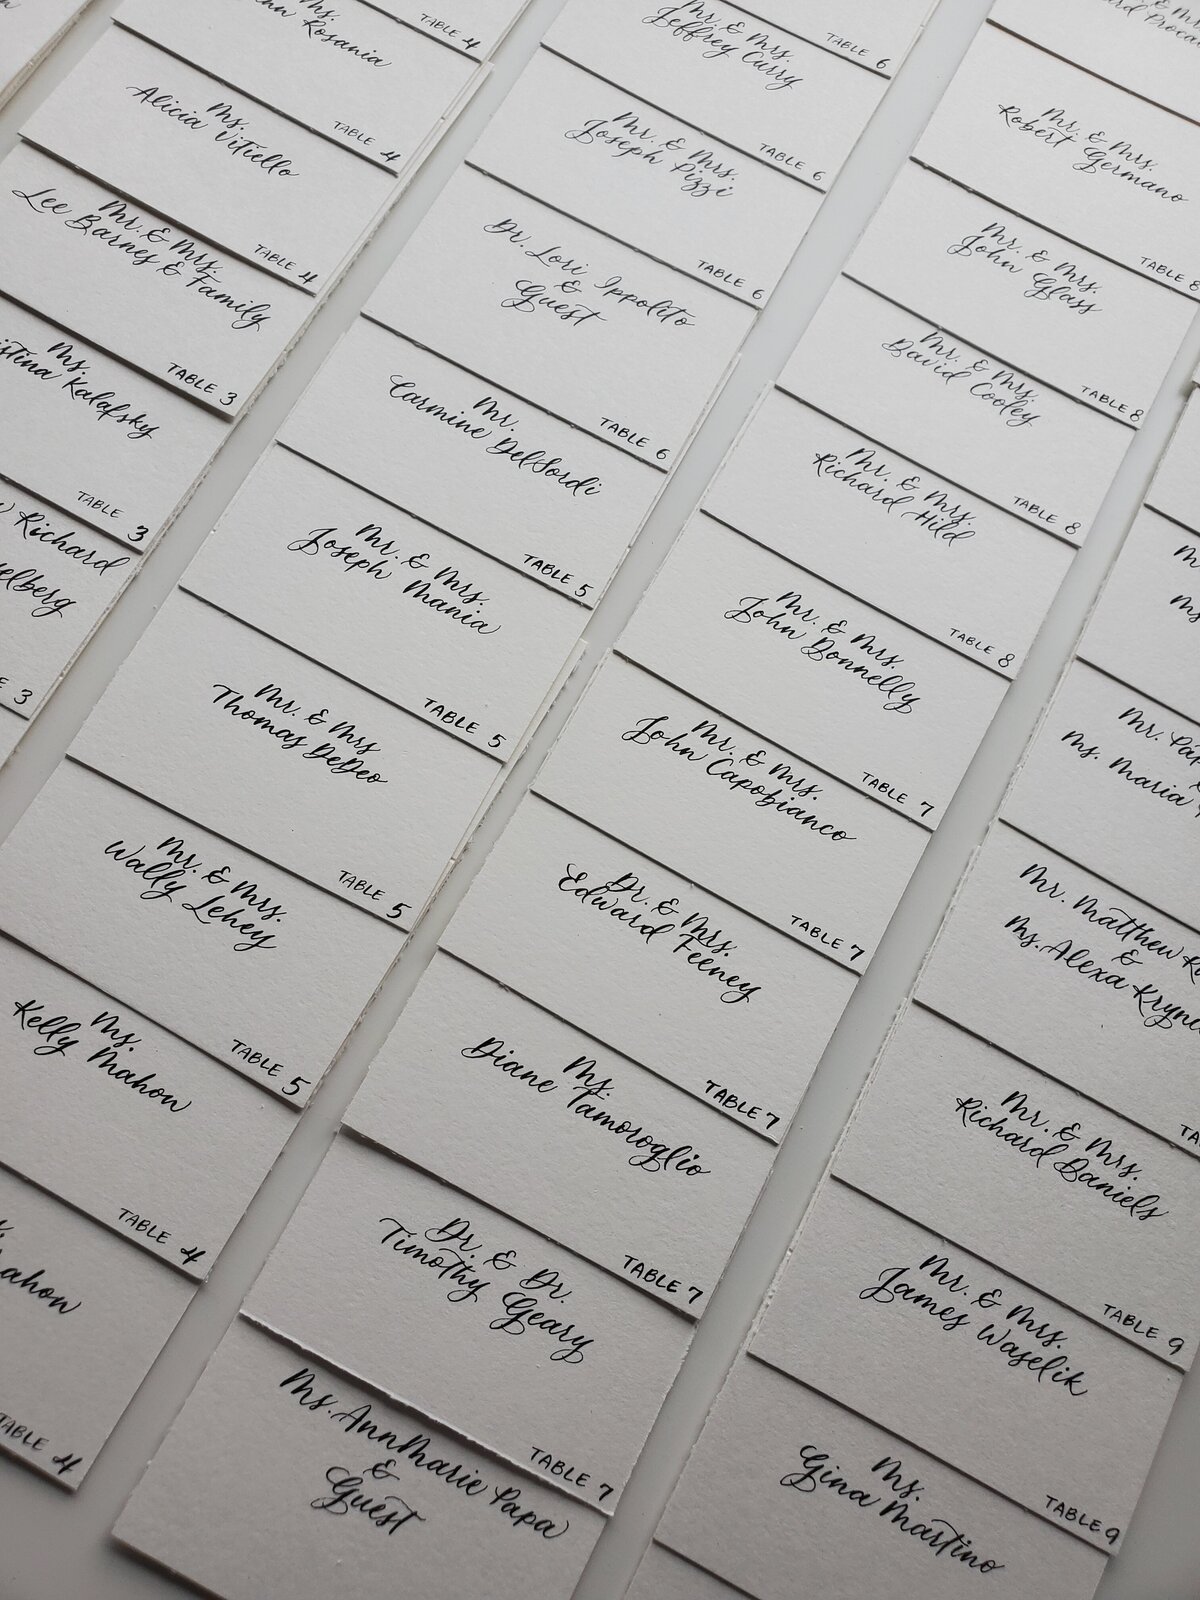 TABLE 4
Ms.
Rosania
TABLE 4
Ms.
Alicia Vitiello
TABLE 4
Mr. & Mrs.
Lee Barnes & Family
TABLE 3
Ms.
Kalafsky
TABLE 3
Richard
3
TABLE 6
Mr. & Mrs.
Jeffrey Curry
TABLE 6
Mr. & Mrs.
Joseph Pizzi
TABLE 6
Dr. Lori Ippolito
&
Guest
TABLE 6
Mr.
Carmine DelSordi
TABLE 5
Mr. & Mrs.
Joseph Mania
TABLE 5
Mr. & Mrs
Thomas DeDeo
TABLE 5
Mr. & Mrs.
Wally Lehey
TABLE 5
Ms.
Kelly Mahon
TABLE 4
TABLE 4
Mr. & Mrs.
Robert Germano
TABLE 8
Mr. & Mrs.
John Glass
TABLE 8
Mr. & Mrs.
David Cooley
TABLE 8
Mr. & Mrs.
Richard Hild
TABLE 8
Mr. & Mrs.
John Donnelly
TABLE 7
Mr. & Mrs.
John Capobianco
TABLE 7
Dr. & Mrs.
Edward Feeney
TABLE 7
Ms.
Diane Tamoroglio
TABLE 7
Dr. & Dr.
Timothy Geary
TABLE 7
Ms. AnnMarie Papa
&
Guest
Mr.
Ms. Maria
Mr. Matthew
&
Ms. Alexa
Mr. & Mrs.
Richard Daniels
TABLE 9
Mr. & Mrs.
James Waselik
TABLE 9
Ms.
Gina Martino